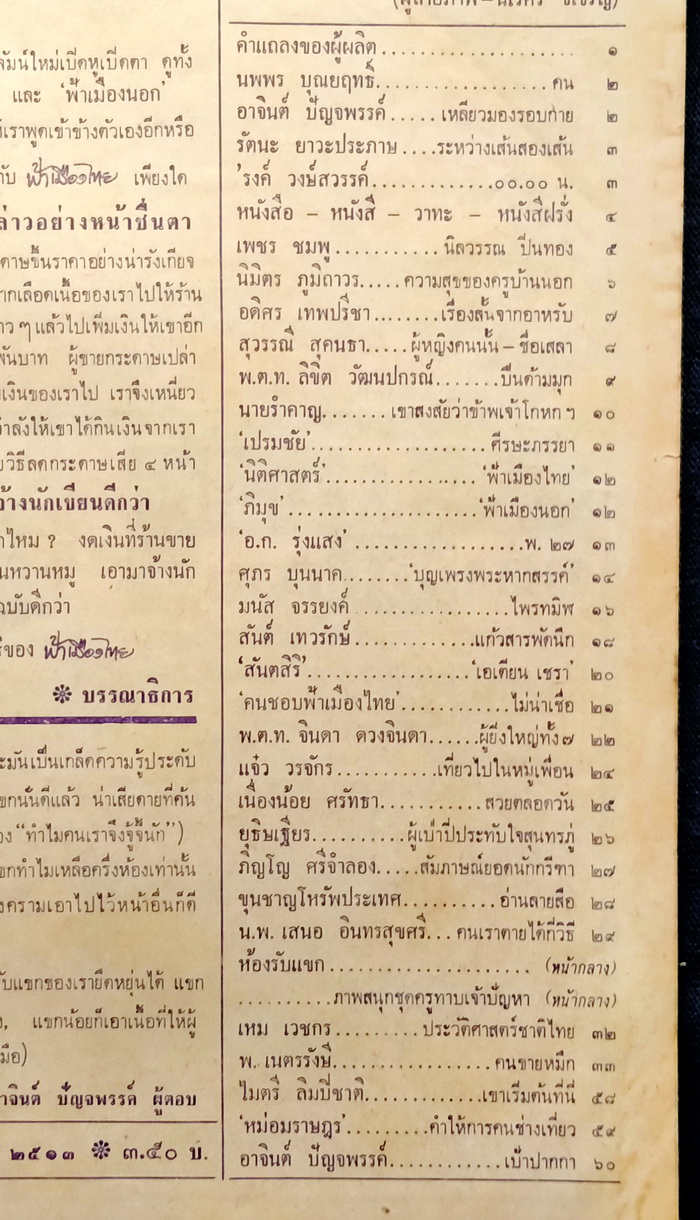 จมันใหม่เบิดหูเบิดตา ดูทั้ง
และ ‘ฟ้าเมืองนอก’
ห้เราพูดเข้าข้างตัวเองอีกหรือ
กับ ฟ้าเมืองไทย เพียงใด
ล่าวอย่างหน้าชื่นตา
ดาษขึ้นราคาอย่างน่ารังเกียจ
ากเลือดเนื้อของเราไปให้ร้าน
าว ๆ แล้วไปเพิ่มเงินให้เขาอีก
พันบาท ผู้ขายกระดาษเปล่า
เงินของเราไป เราจึงเหนี่ยว
กำลังให้เขาได้กินเงินจากเรา
ยวิธีลดกระดาษเสีย ๔ หน้า
จ้างนักเขียนดีกว่า
าไหม ? งดเงินที่ร้านขาย
นหวานหมู เอามาจ้างนัก
ฉบับดีกว่า
รีของ ฟ้าเมืองไทย
❊ บรรณาธิการ
ะมันเป็นเกล็ดความรู้ประดับ
ขกนั่นดีแล้ว น่าเสียดายที่ค้น
อง “ทำไมคนเราจึงจู้จี้นัก”)
ขกทำไมเหลือครึ่งห้องเท่านั้น
งครามเอาไปไว้หน้าอื่นก็ดี
รับแขกของเรายืดหยุ่นได้ แขก
ง, แขกน้อยก็เอาเนื้อที่ให้ผู้
มือ)
าจินต์ ปัญจพรรค์ ผู้ตอบ
๒๕๑๓ ❊ ๓.๕๐ บ.
คำแถลงของผู้ผลิต.................... ๑
นพพร บุณยฤทธิ์..................คน ๒
อาจินต์ ปัญจพรรค์.....เหลียวมองรอบกาย ๒
รัตนะ ยาวะประภาษ....ระหว่างเส้นสองเส้น ๓
’รงค์ วงษ์สวรรค์.............๐๐.๐๐ น. ๓
หนังสือ – หนังสื – วาทะ – หนังสืฝรั่ง ๔
เพชร ชมพู...........นิลวรรณ ปิ่นทอง ๕
นิมิตร ภูมิถาวร.....ความสุขของครูบ้านนอก ๖
อดิศร เทพปรีชา........เรื่องสั้นจากอาหรับ ๗
สุวรรณี สุคนธา.....ผู้หญิงคนนั้น – ชื่อเสลา ๘
พ.ต.ท. ลิขิต วัฒนปกรณ์.......ปืนด้ามมุก ๙
นายรำคาญ.......เขาสงสัยว่าข้าพเจ้าโกหก ๆ ๑๐
‘เปรมชัย’...................ศีรษะภรรยา ๑๑
‘นิติศาสตร์’................‘ฟ้าเมืองไทย’ ๑๒
‘ภิมุข’....................‘ฟ้าเมืองนอก’ ๑๒
‘อ.ก. รุ่งแสง’..................พ. ๒๗ ๑๓
ศุภร บุนนาค........‘บุญเพรงพระหากสรรค์’ ๑๔
มนัส จรรยงค์................ไพรทมิฬ ๑๖
สันต์ เทวรักษ์.............แก้วสารพัดนึก ๑๘
‘สันตสิริ’.................‘เอเตียน เชรา’ ๒๐
‘คนชอบฟ้าเมืองไทย’............ไม่น่าเชื่อ ๒๑
พ.ต.ท. จินดา ดวงจินดา......ผู้ยิ่งใหญ่ทั้ง๗ ๒๒
แจ๋ว วรจักร...........เที่ยวไปในหมู่เพื่อน ๒๔
เนื่องน้อย ศรัทธา............สวยตลอดวัน ๒๕
ยุธิษเฐียร..........ผู้เบ่าปี่ประทับใจสุนทรภู่ ๒๖
ภิญโญ ศรีจำลอง.....สัมภาษณ์ยอดนักกรีฑา ๒๗
ขุนชาญโหรัพประเทศ...........อ่านลายสือ ๒๘
น.พ. เสนอ อินทรสุขศรี...คนเราตายได้กี่วิธี ๒๙
ห้องรับแขก...................... (หน้ากลาง)
..........ภาพสนุกชุดครูทาบเจ้าปัญหา (หน้ากลาง)
เหม เวชกร..........ประวัติศาสตร์ชาติไทย ๓๒
พ. เนตรรังษี..................คนขายหมึก ๓๓
ไมตรี ลิมปิชาติ.............เขาเริ่มต้นที่นี่ ๕๘
‘หม่อมราษฎร’.........คำให้การคนช่างเที่ยว ๕๙
อาจินต์ ปัญจพรรค์............เบ้าปากกา ๖๐